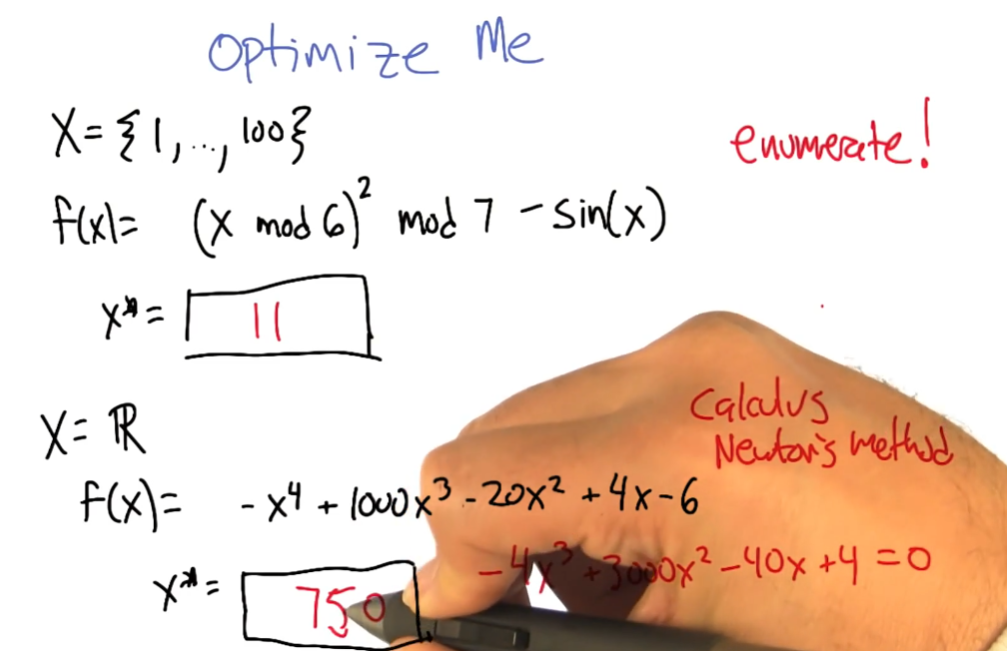 Optimize Me
X = {1,..., 100}
enumerate!
f(x)= (x mod 6)² mod 7 - sin(x)
x* = 11
X = ℝ
Calculus
Newton's method
f(x)= -x⁴ + 1000x³ - 20x² + 4x - 6
-4x³ + 3000x² - 40x + 4 = 0
x* = 750